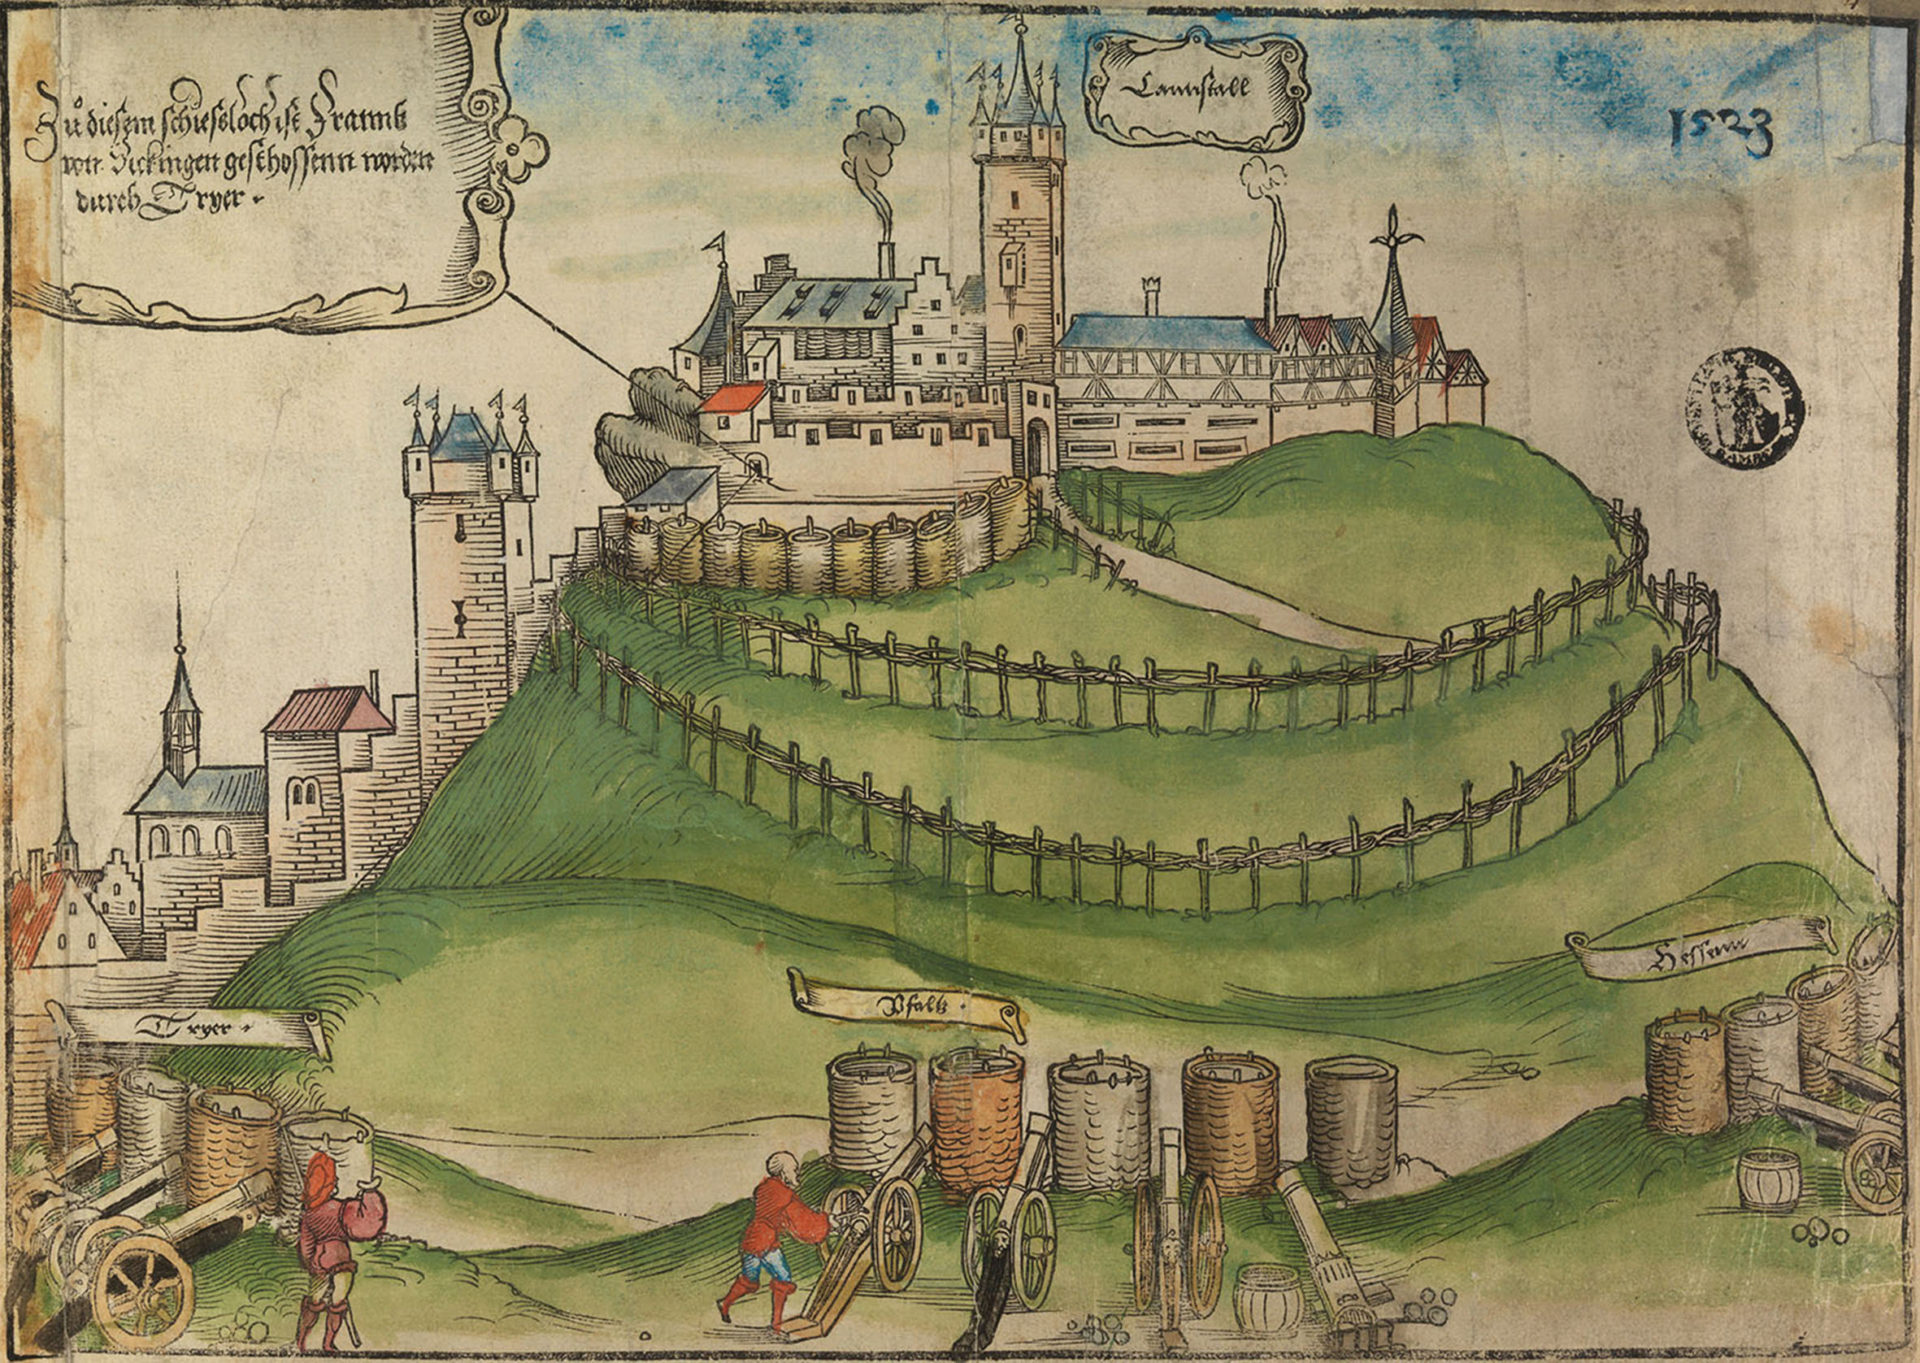 Zů dieszm schiessloch ist Franntz
von Sickingen geschossenn worden
durch Tryer .
Lannstall
1523
Tryer .
Pfaltz .
Hessenn